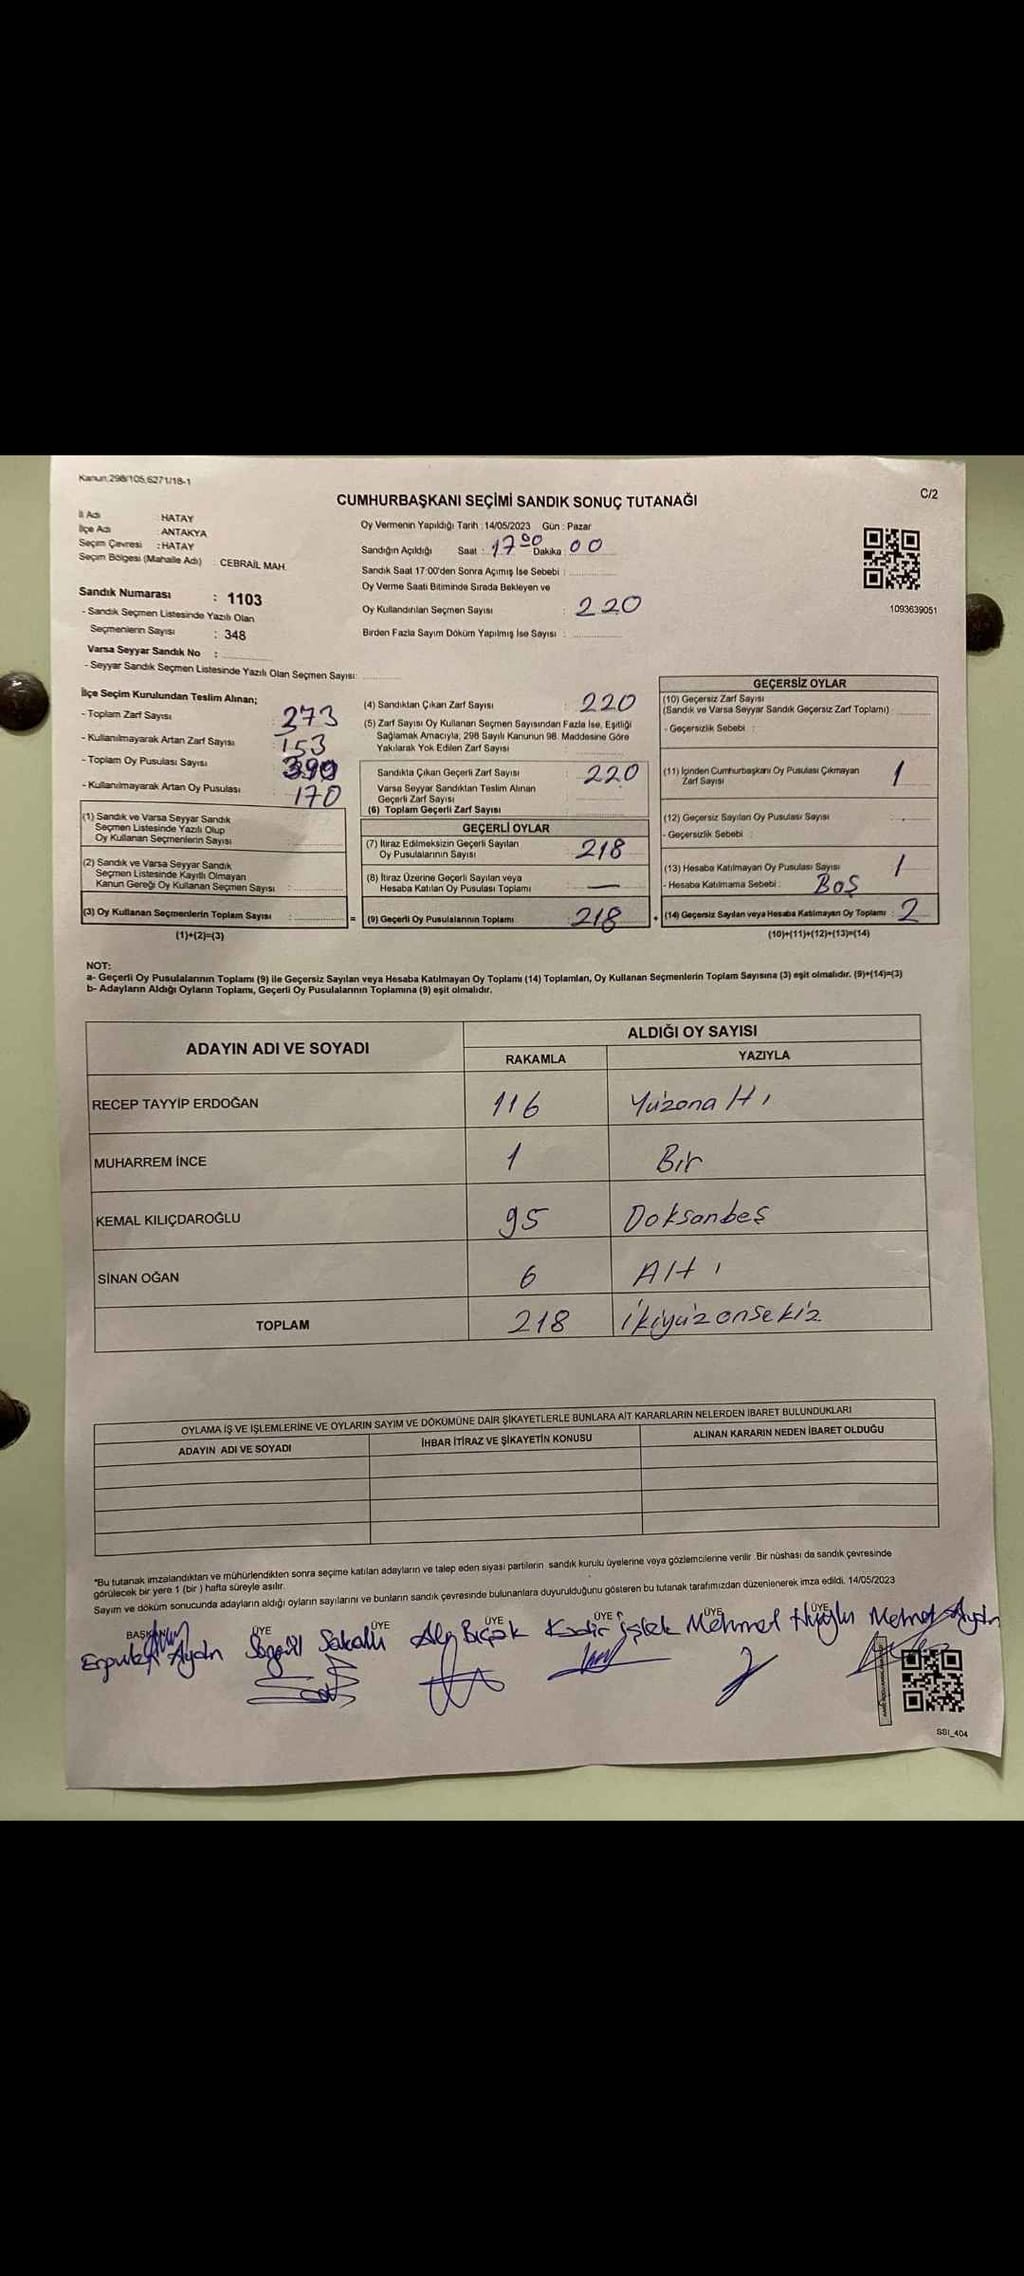 Kanun:298/105,6271/18-1
C/2
CUMHURBAŞKANI SEÇİMİ SANDIK SONUÇ TUTANAĞI
İl Adı : HATAY
İlçe Adı : ANTAKYA
Seçim Çevresi : HATAY
Seçim Bölgesi (Mahalle Adı) : CEBRAİL MAH.
Sandık Numarası : 1103
- Sandık Seçmen Listesinde Yazılı Olan
Seçmenlerin Sayısı : 348
Varsa Seyyar Sandık No :
- Seyyar Sandık Seçmen Listesinde Yazılı Olan Seçmen Sayısı:
Oy Vermenin Yapıldığı Tarih : 14/05/2023 Gün : Pazar
Sandığın Açıldığı Saat : 17 00 Dakika 00
Sandık Saat 17:00'den Sonra Açımış İse Sebebi :
Oy Verme Saati Bitiminde Sırada Bekleyen ve
Oy Kullandırılan Seçmen Sayısı : 220
Birden Fazla Sayım Döküm Yapılmış İse Sayısı :
1093639051
İlçe Seçim Kurulundan Teslim Alınan;
- Toplam Zarf Sayısı : 273
- Kullanılmayarak Artan Zarf Sayısı : 153
- Toplam Oy Pusulası Sayısı
- Kullanılmayarak Artan Oy Pusulası : 170
(1) Sandık ve Varsa Seyyar Sandık
Seçmen Listesinde Yazılı Olup
Oy Kullanan Seçmenlerin Sayısı :
(2) Sandık ve Varsa Seyyar Sandık
Seçmen Listesinde Kayıtlı Olmayan
Kanun Gereği Oy Kullanan Seçmen Sayısı :
(3) Oy Kullanan Seçmenlerin Toplam Sayısı :
(1)+(2)=(3)
(4) Sandıktan Çıkan Zarf Sayısı : 220
(5) Zarf Sayısı Oy Kullanan Seçmen Sayısından Fazla İse, Eşitliği
Sağlamak Amacıyla, 298 Sayılı Kanunun 98. Maddesine Göre
Yakılarak Yok Edilen Zarf Sayısı :
Sandıkta Çıkan Geçerli Zarf Sayısı : 220
Varsa Seyyar Sandıktan Teslim Alınan
Geçerli Zarf Sayısı :
(6) Toplam Geçerli Zarf Sayısı
GEÇERLİ OYLAR
(7) İtiraz Edilmeksizin Geçerli Sayılan
Oy Pusulalarının Sayısı : 218
(8) İtiraz Üzerine Geçerli Sayılan veya
Hesaba Katılan Oy Pusulası Toplamı : —
= (9) Geçerli Oy Pusulalarının Toplamı : 218 +
GEÇERSİZ OYLAR
(10) Geçersiz Zarf Sayısı
(Sandık ve Varsa Seyyar Sandık Geçersiz Zarf Toplamı) :
- Geçersizlik Sebebi :
(11) İçinden Cumhurbaşkanı Oy Pusulası Çıkmayan
Zarf Sayısı 1
(12) Geçersiz Sayılan Oy Pusulası Sayısı
- Geçersizlik Sebebi :
(13) Hesaba Katılmayan Oy Pusulası Sayısı 1
- Hesaba Katılmama Sebebi : BOŞ
(14) Geçersiz Sayılan veya Hesaba Katılmayan Oy Toplamı : 2
(10)+(11)+(12)+(13)=(14)
NOT:
a- Geçerli Oy Pusulalarının Toplamı (9) ile Geçersiz Sayılan veya Hesaba Katılmayan Oy Toplamı (14) Toplamları, Oy Kullanan Seçmenlerin Toplam Sayısına (3) eşit olmalıdır. (9)+(14)=(3)
b- Adayların Aldığı Oyların Toplamı, Geçerli Oy Pusulalarının Toplamına (9) eşit olmalıdır.
ADAYIN ADI VE SOYADI ALDIĞI OY SAYISI
RAKAMLA YAZIYLA
RECEP TAYYİP ERDOĞAN 116 Yüzonaltı
MUHARREM İNCE 1 Bir
KEMAL KILIÇDAROĞLU 95 Doksanbeş
SİNAN OĞAN 6 Altı
TOPLAM 218 ikiyüzonsekiz
OYLAMA İŞ VE İŞLEMLERİNE VE OYLARIN SAYIM VE DÖKÜMÜNE DAİR ŞİKAYETLERLE BUNLARA AİT KARARLARIN NELERDEN İBARET BULUNDUKLARI
ADAYIN ADI VE SOYADI İHBAR İTİRAZ VE ŞİKAYETİN KONUSU ALINAN KARARIN NEDEN İBARET OLDUĞU
*Bu tutanak imzalandıktan ve mühürlendikten sonra seçime katılan adayların ve talep eden siyasi partilerin sandık kurulu üyelerine veya gözlemcilerine verilir. Bir nüshası da sandık çevresinde
görülecek bir yere 1 (bir ) hafta süreyle asılır.
Sayım ve döküm sonucunda adayların aldığı oyların sayılarını ve bunların sandık çevresinde bulunanlara duyurulduğunu gösteren bu tutanak tarafımızdan düzenlenerek imza edildi. 14/05/2023
BAŞKAN ÜYE ÜYE ÜYE ÜYE ÜYE ÜYE
Aydın Sakallı Alp Bıçak Kadir İşlek Mehmet Mehmet Aydın
SSI_404